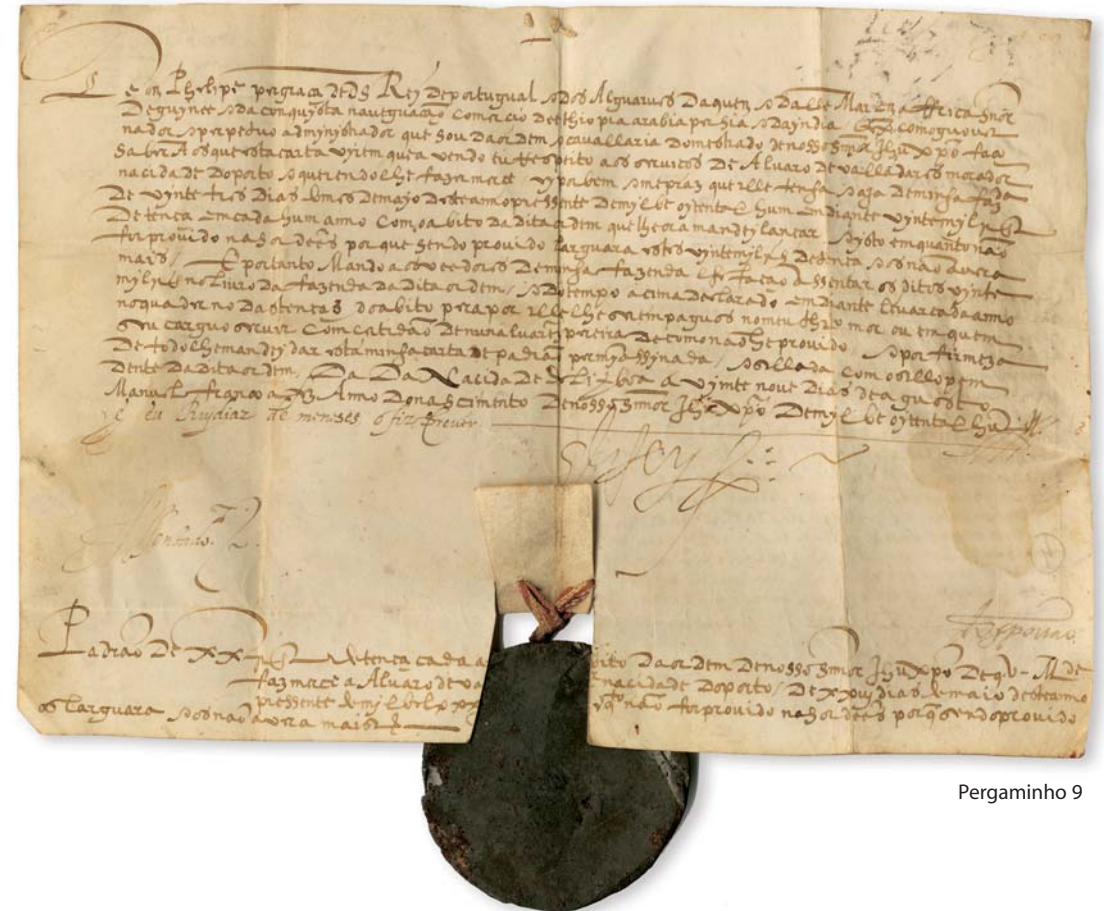 Dom Phelipe per graça de Ds Rey de portugual e dos Alguarves daquem e dalle Mar em Affrica snor
de guinee e da conquista naueguação comercio de ethiopia arabia persia e da yndia &c como gouer
nador e perpetuo administrador que sou da ordem e cavallaria do mestrado de nosso Snnor Jhu Xpõ faço
saber A os que esta carta virem que avendo eu respeito a os servicos de Alvaro de valladares morador
na cidade do porto e querendo lhe fazer merce ey por bem e me praz que elle tenha e aja de minha fazda
de vynte tres dias do mes de mayo deste anno pressente de mil bc oytenta e hum em diante vynte mil rs
de tença em cada hum anno com o abito da dita ordem que lhe ora mandey lançar e ysto em quanto não
for provido na hordẽs por que sendo provido larguara estes vynte mil rs de tença e os não avera
mais / E portanto Mando a os veedores de minha fazenda lhe fação assentar os ditos vynte
mil rs no Livro da fazenda da dita ordem / e do tempo acima declarado em diante levar cada anno
no quaderno das tenças do abito pera por elle lhe serem paguos no meu thro mor ou em quem
seu carguo servir com certidão de nunalvares pereira de como não he provido e por firmeza
de todo lhe mandey dar esta minha carta de padrão per my assynada / e sellada com o sello pen
dente da dita ordem / Dada Na cidade de Lixboa a vynte nove dias de agosto
Manuel franco a fez Anno do nascimento de nosso Snnor Jhu Xpõ de mil bc oytenta e hũ
E eu Ruy diaz de meneses o fiz screver
el Rey
Padrão de XX rs de tença cada a bito da ordem de nosso Snnor Jhu Xpõ de q V. M. de
faz merce a Alvaro de va na cidade do porto / de xxiij dias de maio deste anno
pressente de mil bc lxxx não for provido na hordẽs porq sendo provido
os larguara e os não avera mais
Pergaminho 9